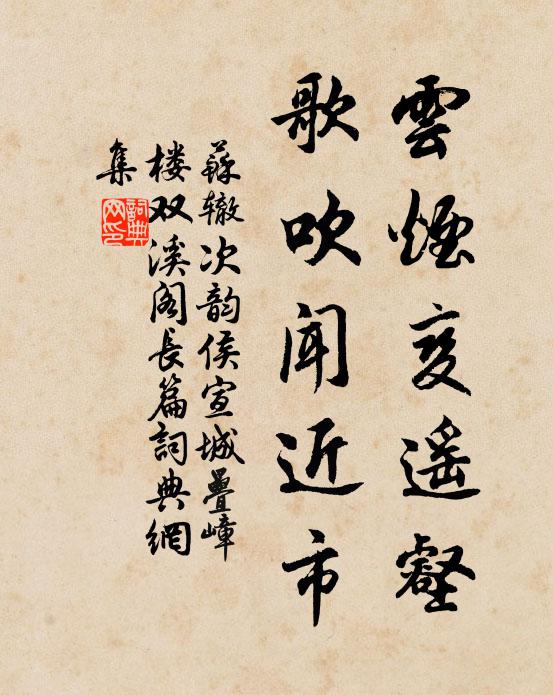 雲煙变遥壑
歌吹闻近市
蘇辙次韵侯宣城疊嶂
楼双溪阁長篇詞典網
集
詞典
网印